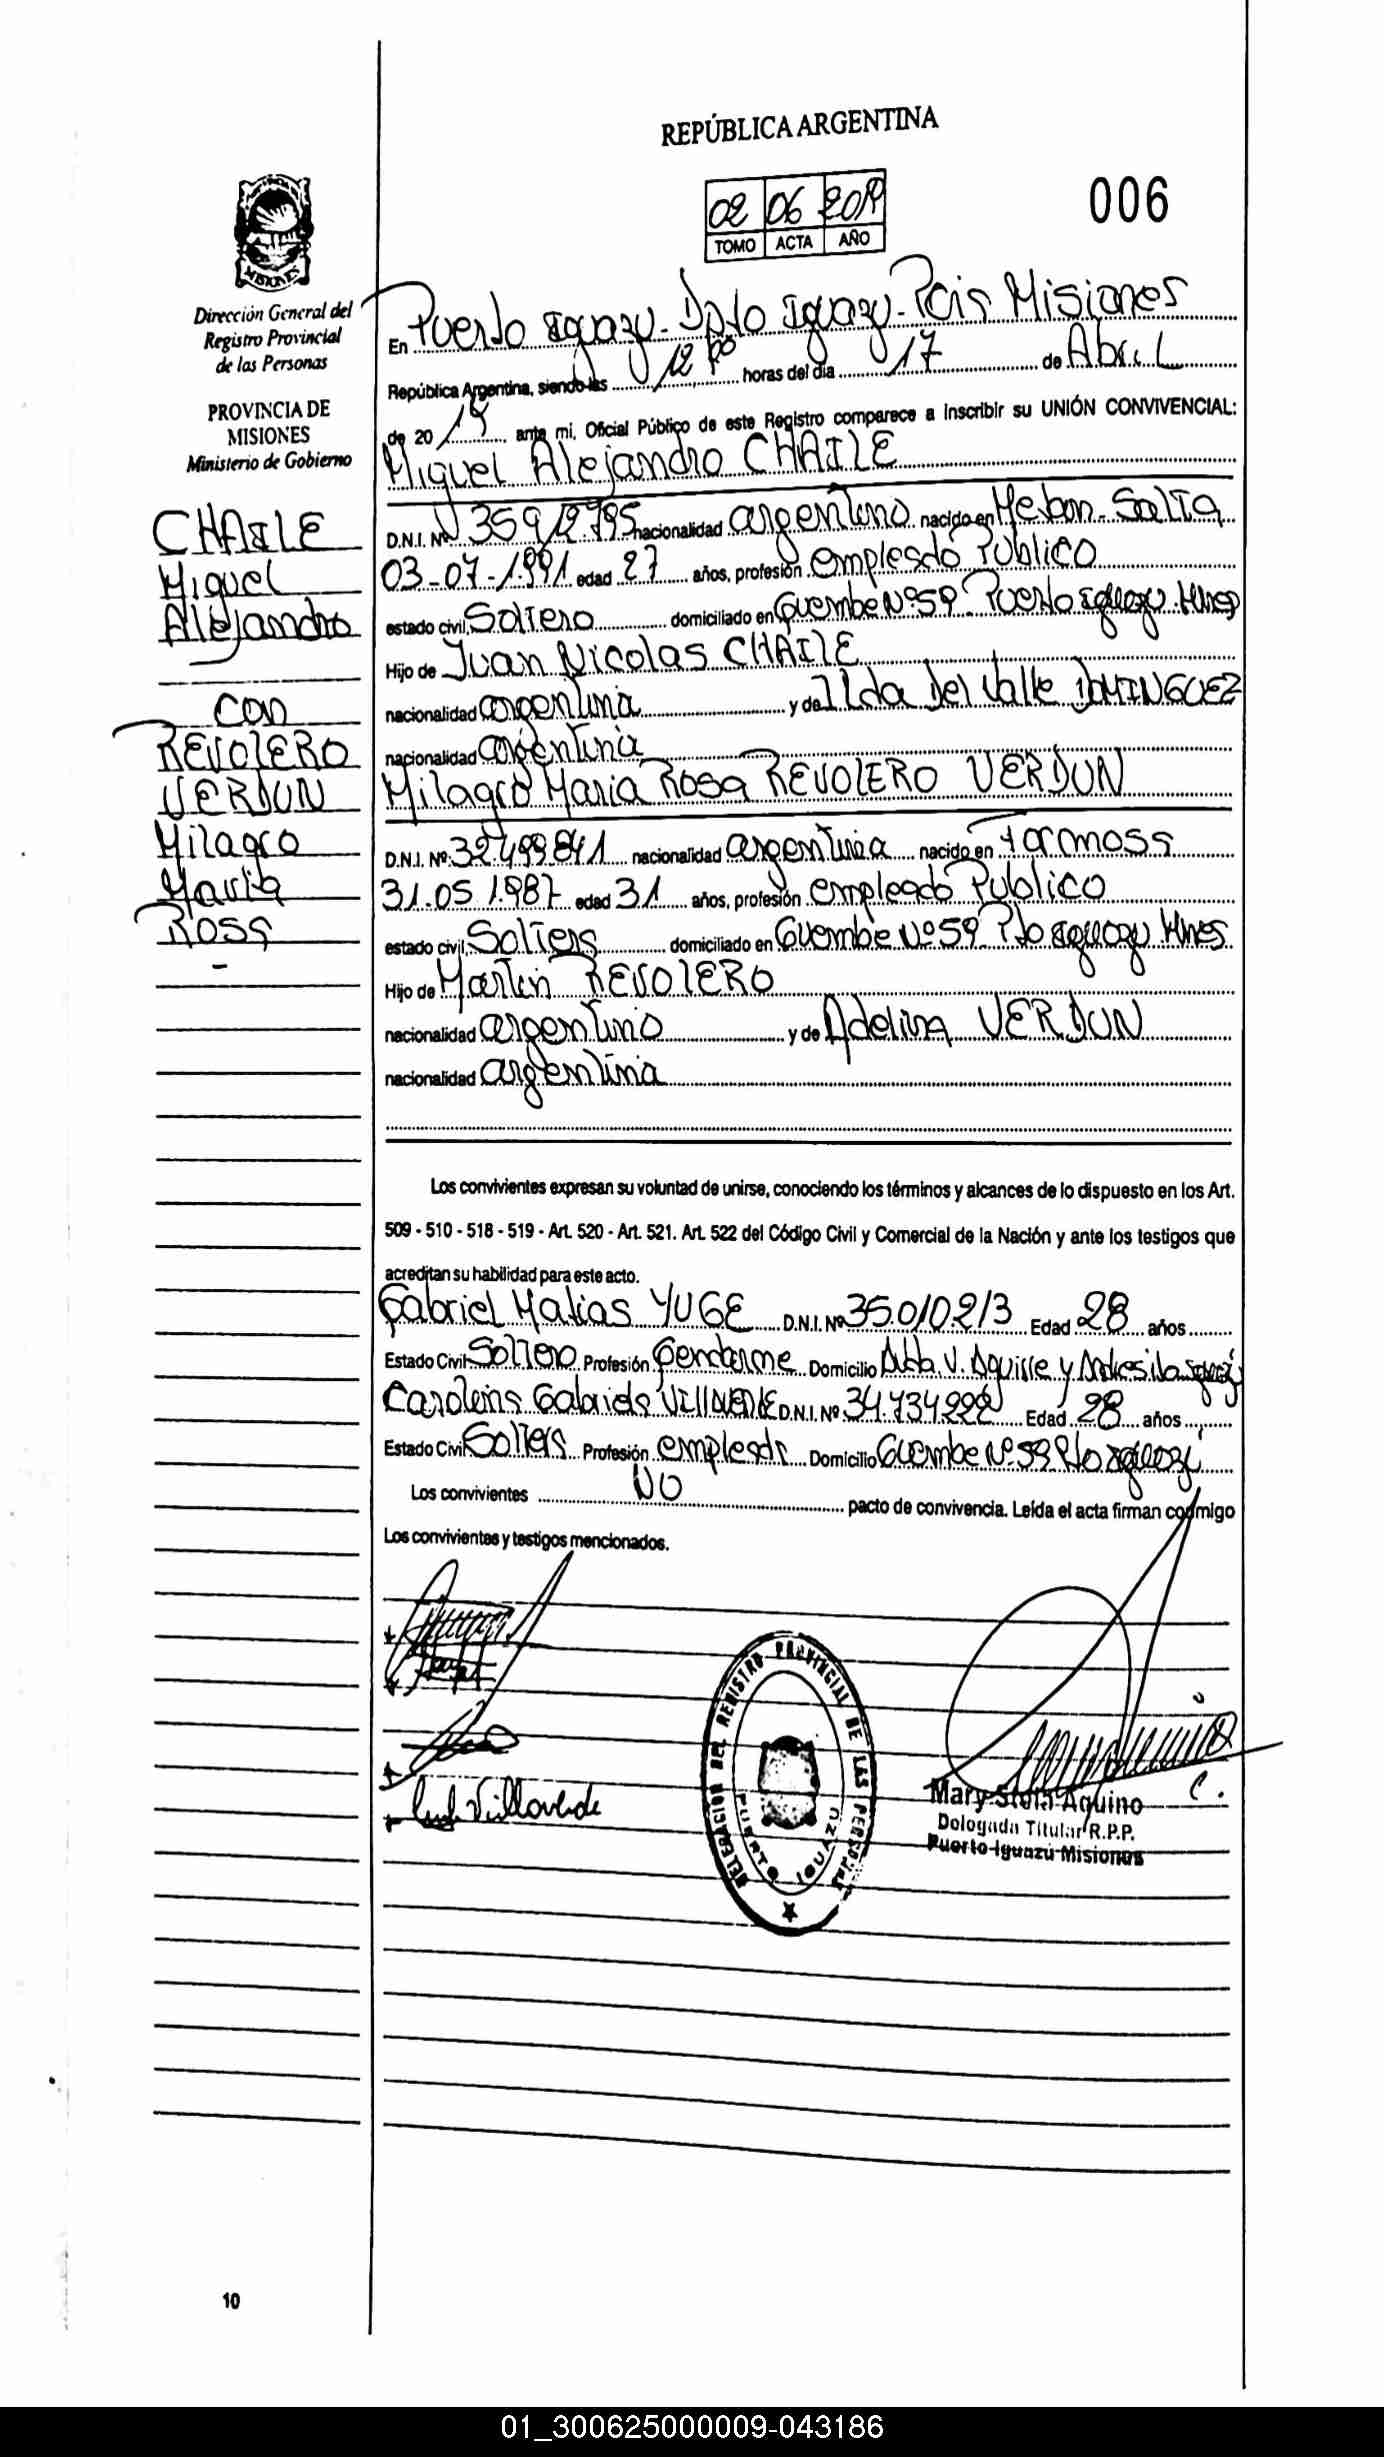 REPÚBLICA ARGENTINA
006
02 06 2019
TOMO ACTA AÑO
Dirección General del
Registro Provincial
de las Personas
PROVINCIA DE
MISIONES
Ministerio de Gobierno
CHAILE
Miguel
Alejandro
con
REVOLERO
VERDUN
Milagro
Maria
Rosa
En Puerto Iguazu - Dpto Iguazu - Pcia Misiones
República Argentina, siendo las 12 horas del día 17 de Abril
de 2019 ante mi, Oficial Público de este Registro comparece a inscribir su UNIÓN CONVIVENCIAL:
Miguel Alejandro CHAILE
D.N.I. Nº 35912795 nacionalidad argentino nacido en Metan - Salta
03-07-1991 edad 27 años, profesión empleado Publico
estado civil, Soltero domiciliado en Guembe Nº 59 Puerto Iguazu Mnes
Hijo de Juan Nicolas CHAILE
nacionalidad argentina y de Ilda Del Valle DOMINGUEZ
nacionalidad argentina
Milagro Maria Rosa REVOLERO VERDUN
D.N.I. Nº 32.499.841 nacionalidad argentina nacido en Formosa
31.05.1987 edad 31 años, profesión empleado Publico
estado civil, Soltera domiciliado en Guembe Nº 59 Pto Iguazu Mnes
Hijo de Martin REVOLERO
nacionalidad argentino y de Adelina VERDUN
nacionalidad argentina
Los convivientes expresan su voluntad de unirse, conociendo los términos y alcances de lo dispuesto en los Art.
509 - 510 - 518 - 519 - Art. 520 - Art. 521. Art. 522 del Código Civil y Comercial de la Nación y ante los testigos que
acreditan su habilidad para este acto.
Gabriel Matias YUGE D.N.I. Nº 35.010.213 Edad 28 años
Estado Civil Soltero Profesión Gendarme Domicilio V. Aguirre y
Carolina Gabriela VILLAVERDE D.N.I. Nº 34.734.222 Edad 28 años
Estado Civil Soltera Profesión empleada Domicilio Guembe Nº 59 Pto Iguazú
Los convivientes NO pacto de convivencia. Leída el acta firman conmigo
Los convivientes y testigos mencionados.
Villaverde
DELEGACION DEL REGISTRO PROVINCIAL DE LAS PERSONAS
PUERTO IGUAZU
Mary Stela Aquino
Delegada Titular R.P.P.
Puerto Iguazú Misiones
10
01_300625000009-043186